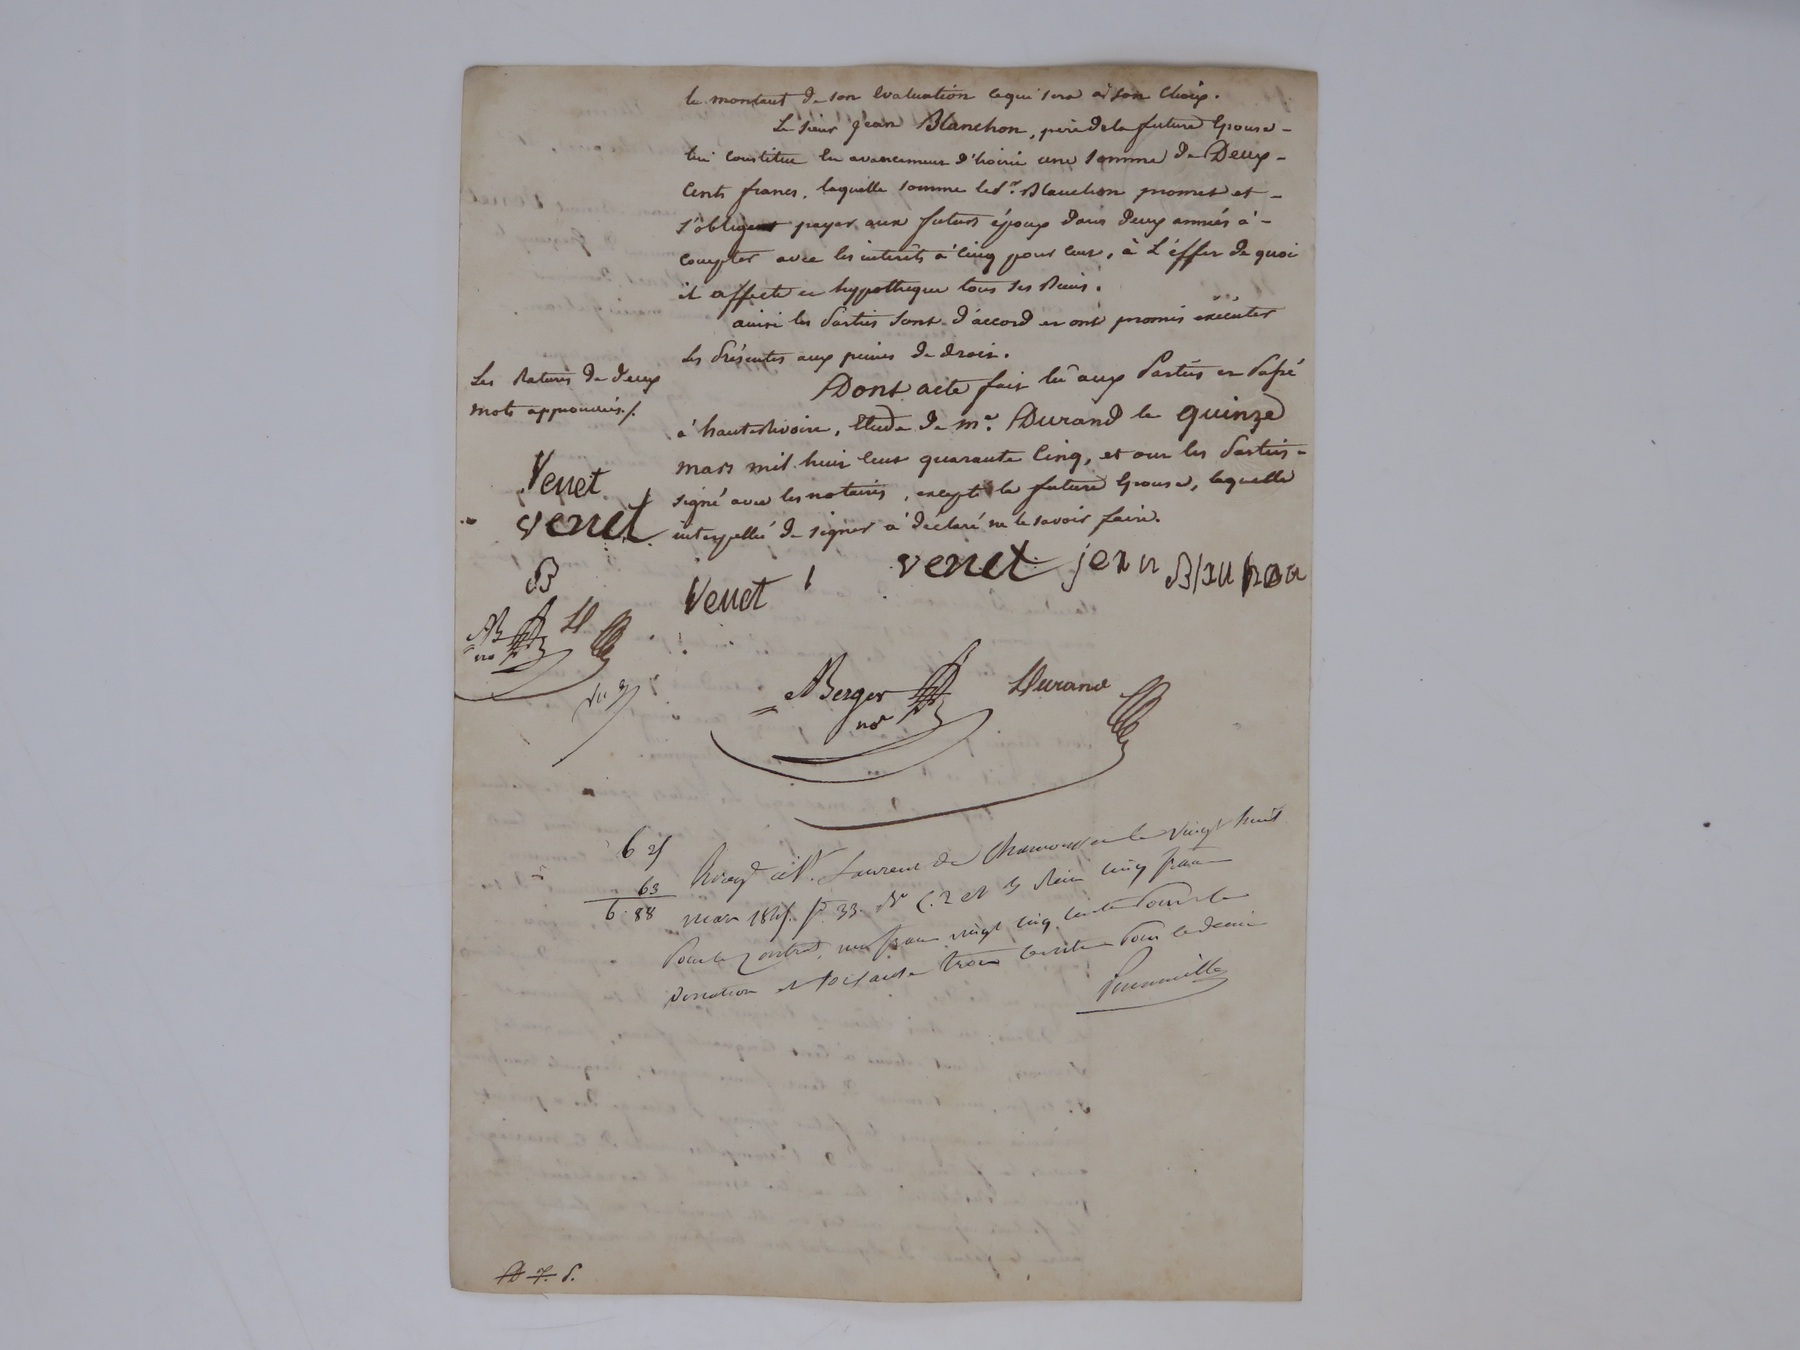 le montant de son évaluation ce qui sera à son choix.
Le sieur Jean Blanchon, père de la future épouse
lui constitue en avancement d'hoirie une somme de Deux
Cents francs, laquelle somme led. Sr. Blanchon promet et
s'oblige payer aux futurs époux dans deux années à
compter avec les intérêts à cinq pour cent, à l'effet de quoi
il affecte et hypothèque tous ses Biens.
ainsi les Parties sont d'accord et ont promis exécuter
les Présentes aux peines de droit.
Dont acte fait lû aux Parties et Passé
à hauterivoire, Etude de Me. Durand le quinze
mars mil huit cent quarante cinq, et ont les Parties
signé avec les notaires, excepté la future épouse, laquelle
interpellée de signer a déclaré ne le savoir faire.
Les Ratures de deux
mots approuvées ./.
Venet
venet
B
AB
no
D
Venet
venet jean Blanchon
ABerger
nore
Durand
6 25
63
6.88
Enregé à St. Laurent de Chamousset le vingt huit
mars 1845 fo 33 Ro C. 2 et 3 Reçu cinq francs
Pour le Contrat, un franc vingt cinq centimes Pour la
Donation et soixante trois centimes Pour le décime